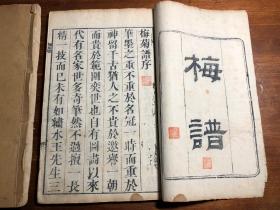 梅譜
梅菊譜序
筆墨之重不重於名冠一時而重於
神留千古猶人之不貴於慾譽一朝
而貴於範圍奕世也自有圖譜以來
代有名家世多奇筆然不過擅一長
精一技而已未有如蠙水王先生三